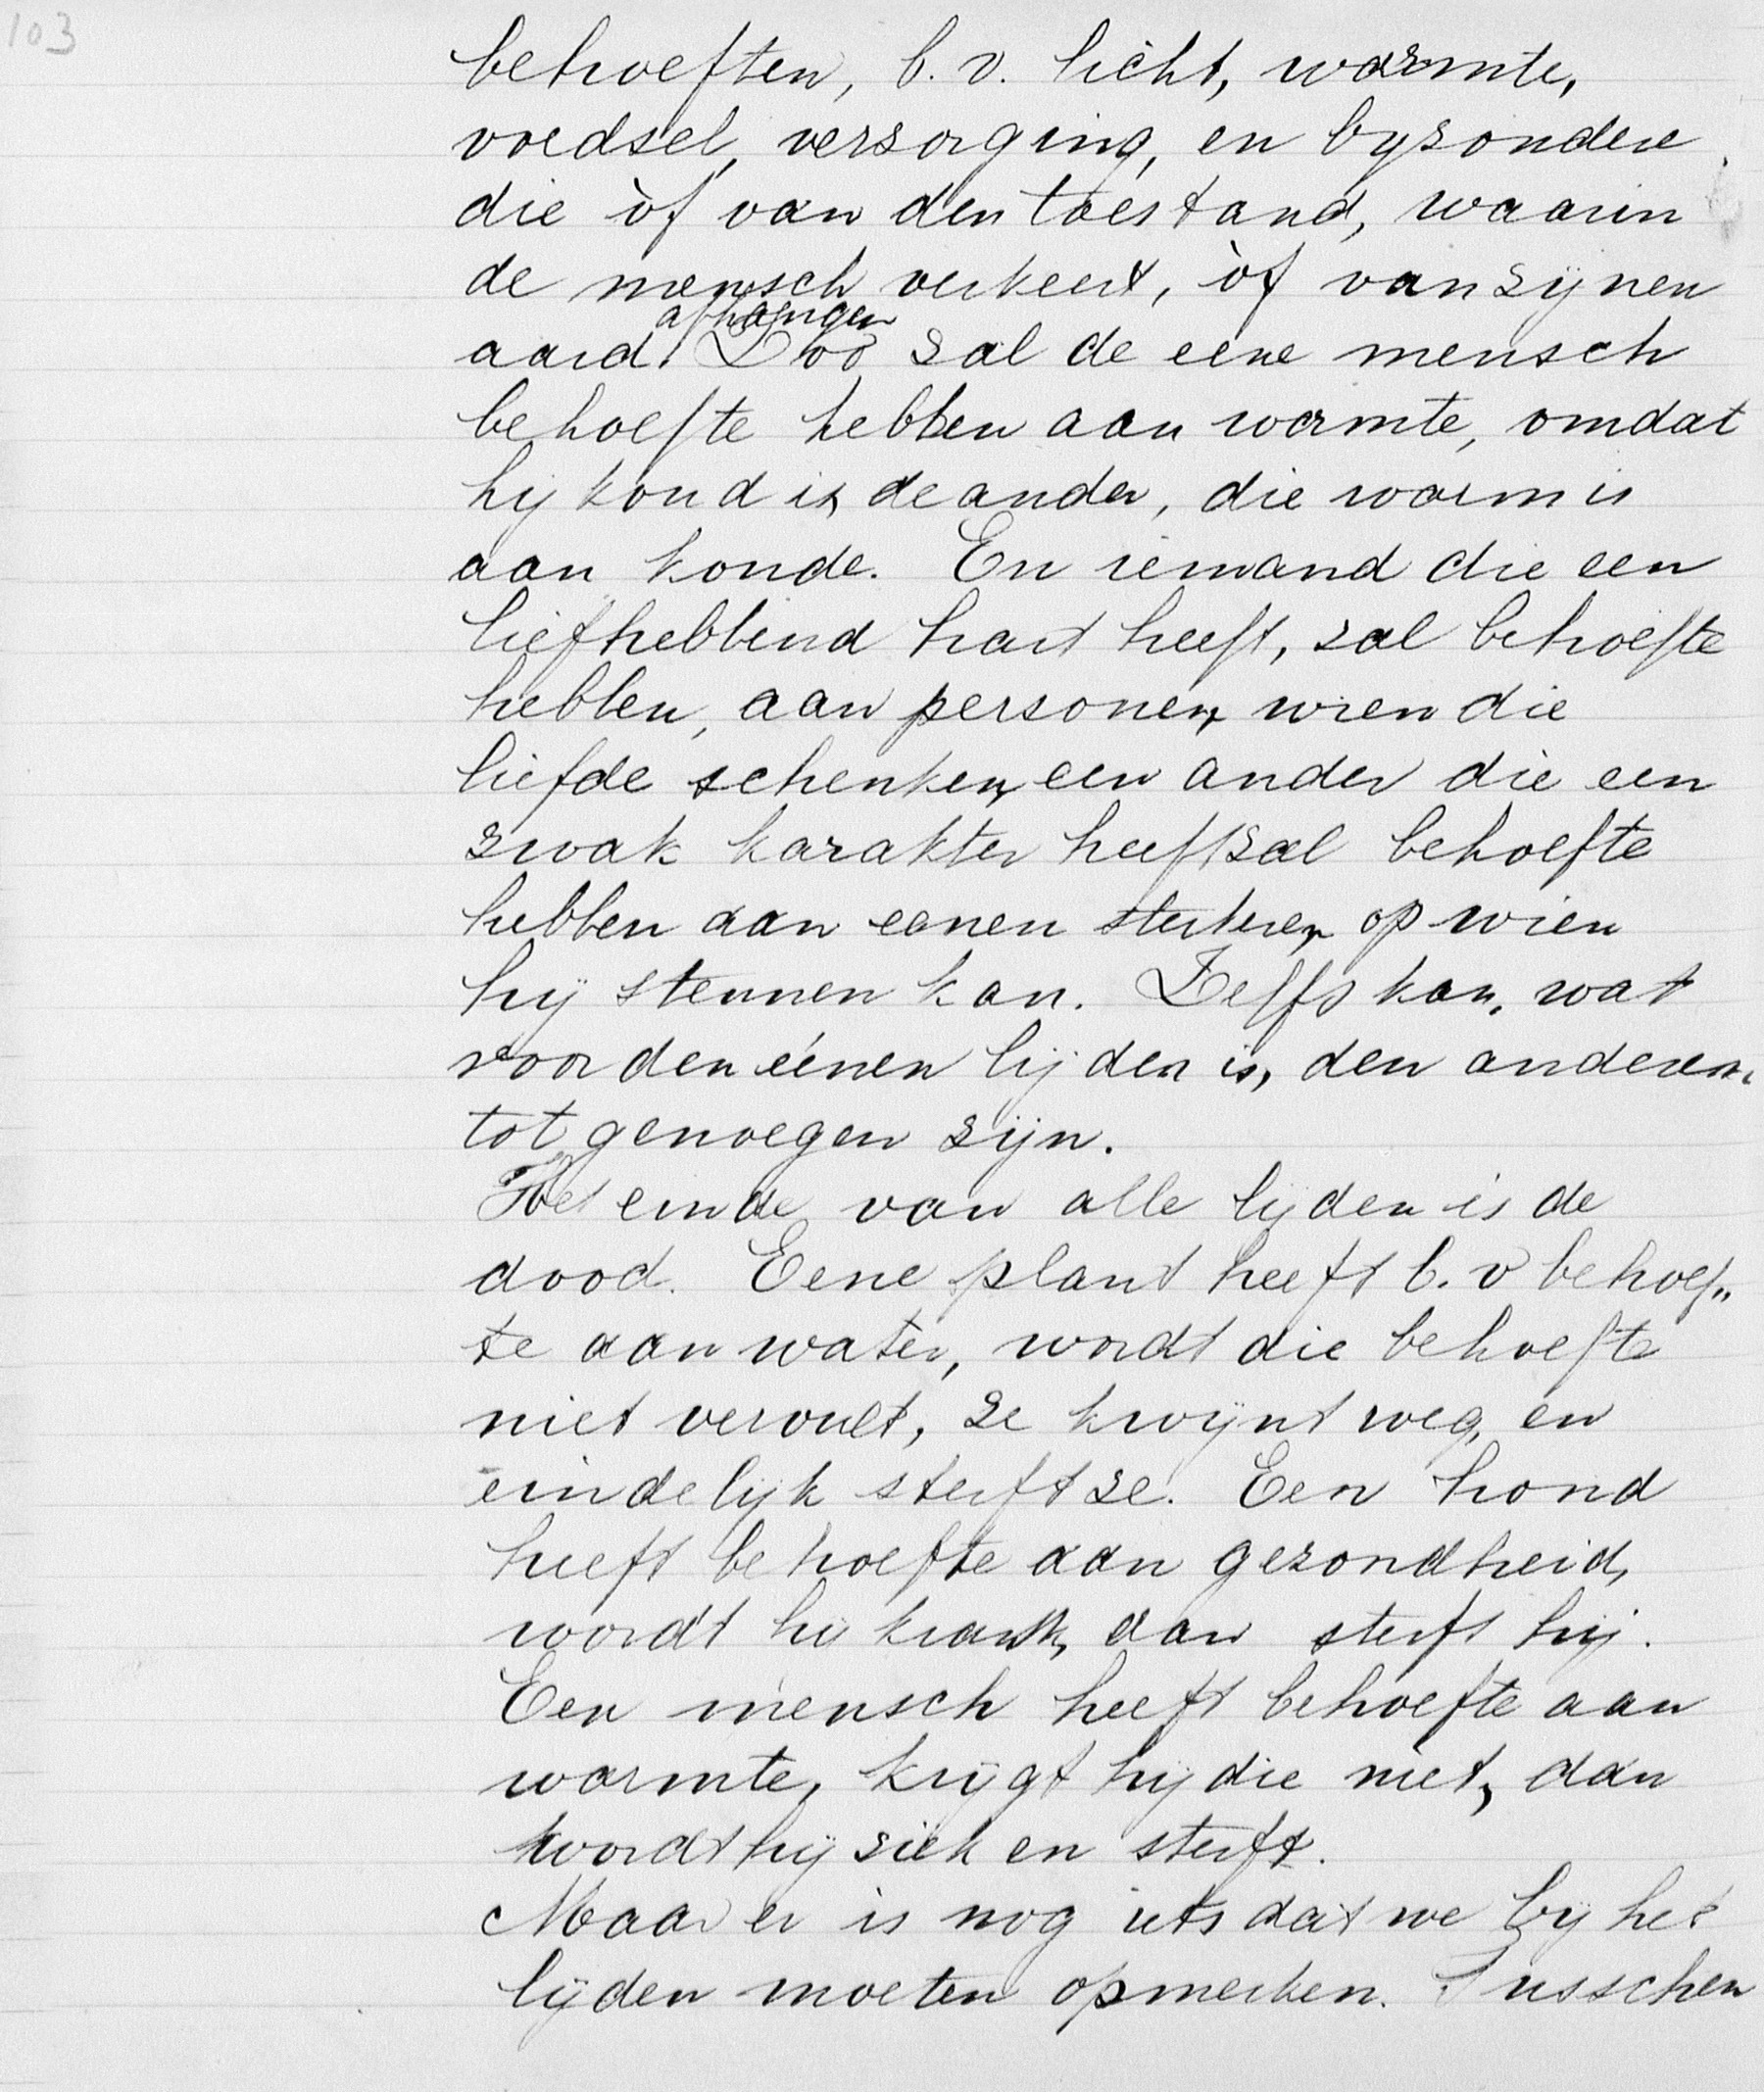 103
behoeften, b.v. licht, warmte,
voedsel, verzorging, en byzondere
die òf van den toestand, waarin
de mensch verkeert, òf van zijnen
afhangen
aard. Zoo zal de eene mensch
behoefte hebben aan warmte, omdat
hij koud is, de ander, die warm is
aan koude. En iemand die een
liefhebbend hart heeft, zal behoefte
hebben, aan personen, wien die
liefde schenken, een ander die een
zwak karakter heeft zal behoefte
hebben aan eenen sterkeren, op wien
hij steunen kan. Zelfs kan, wat
voor den éénen lijden is, den anderen
tot genoegen zijn.
Het einde van alle lijden is de
dood. Eene plant heeft b.v behoef„
te aan water, wordt die behoefte
niet vervult, ze kwijnt weg, en
eindelijk sterft ze. Een hond
heeft behoefte aan gezondheid,
wordt hij krank, dan sterft hij.
Een mensch heeft behoefte aan
warmte, krijgt hij die niet, dan
wordt hij ziek en sterft.
Maar er is nog iets dat we bij het
lijden moeten opmerken. Tusschen